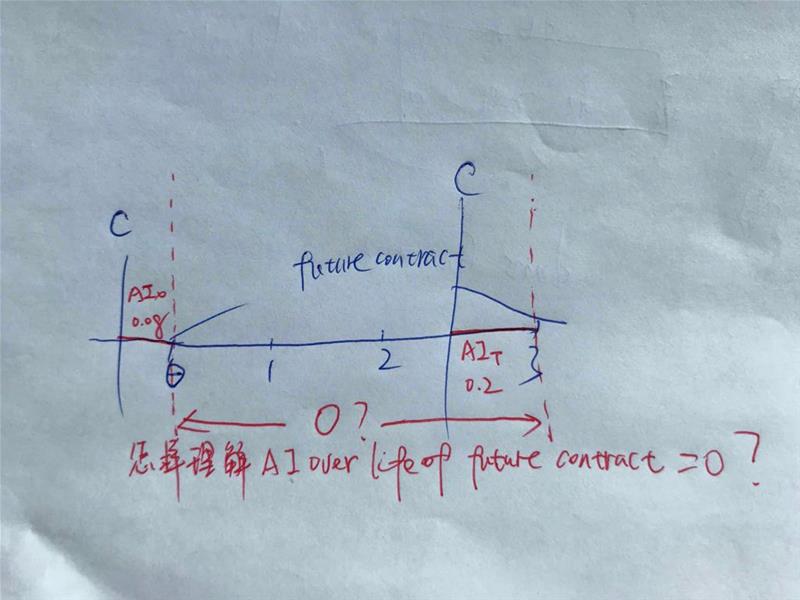 C
C
future contract
AI₀
0.08
0
1
2
3
AI_T
0.2
0?
怎样理解 AI over life of future contract = 0?